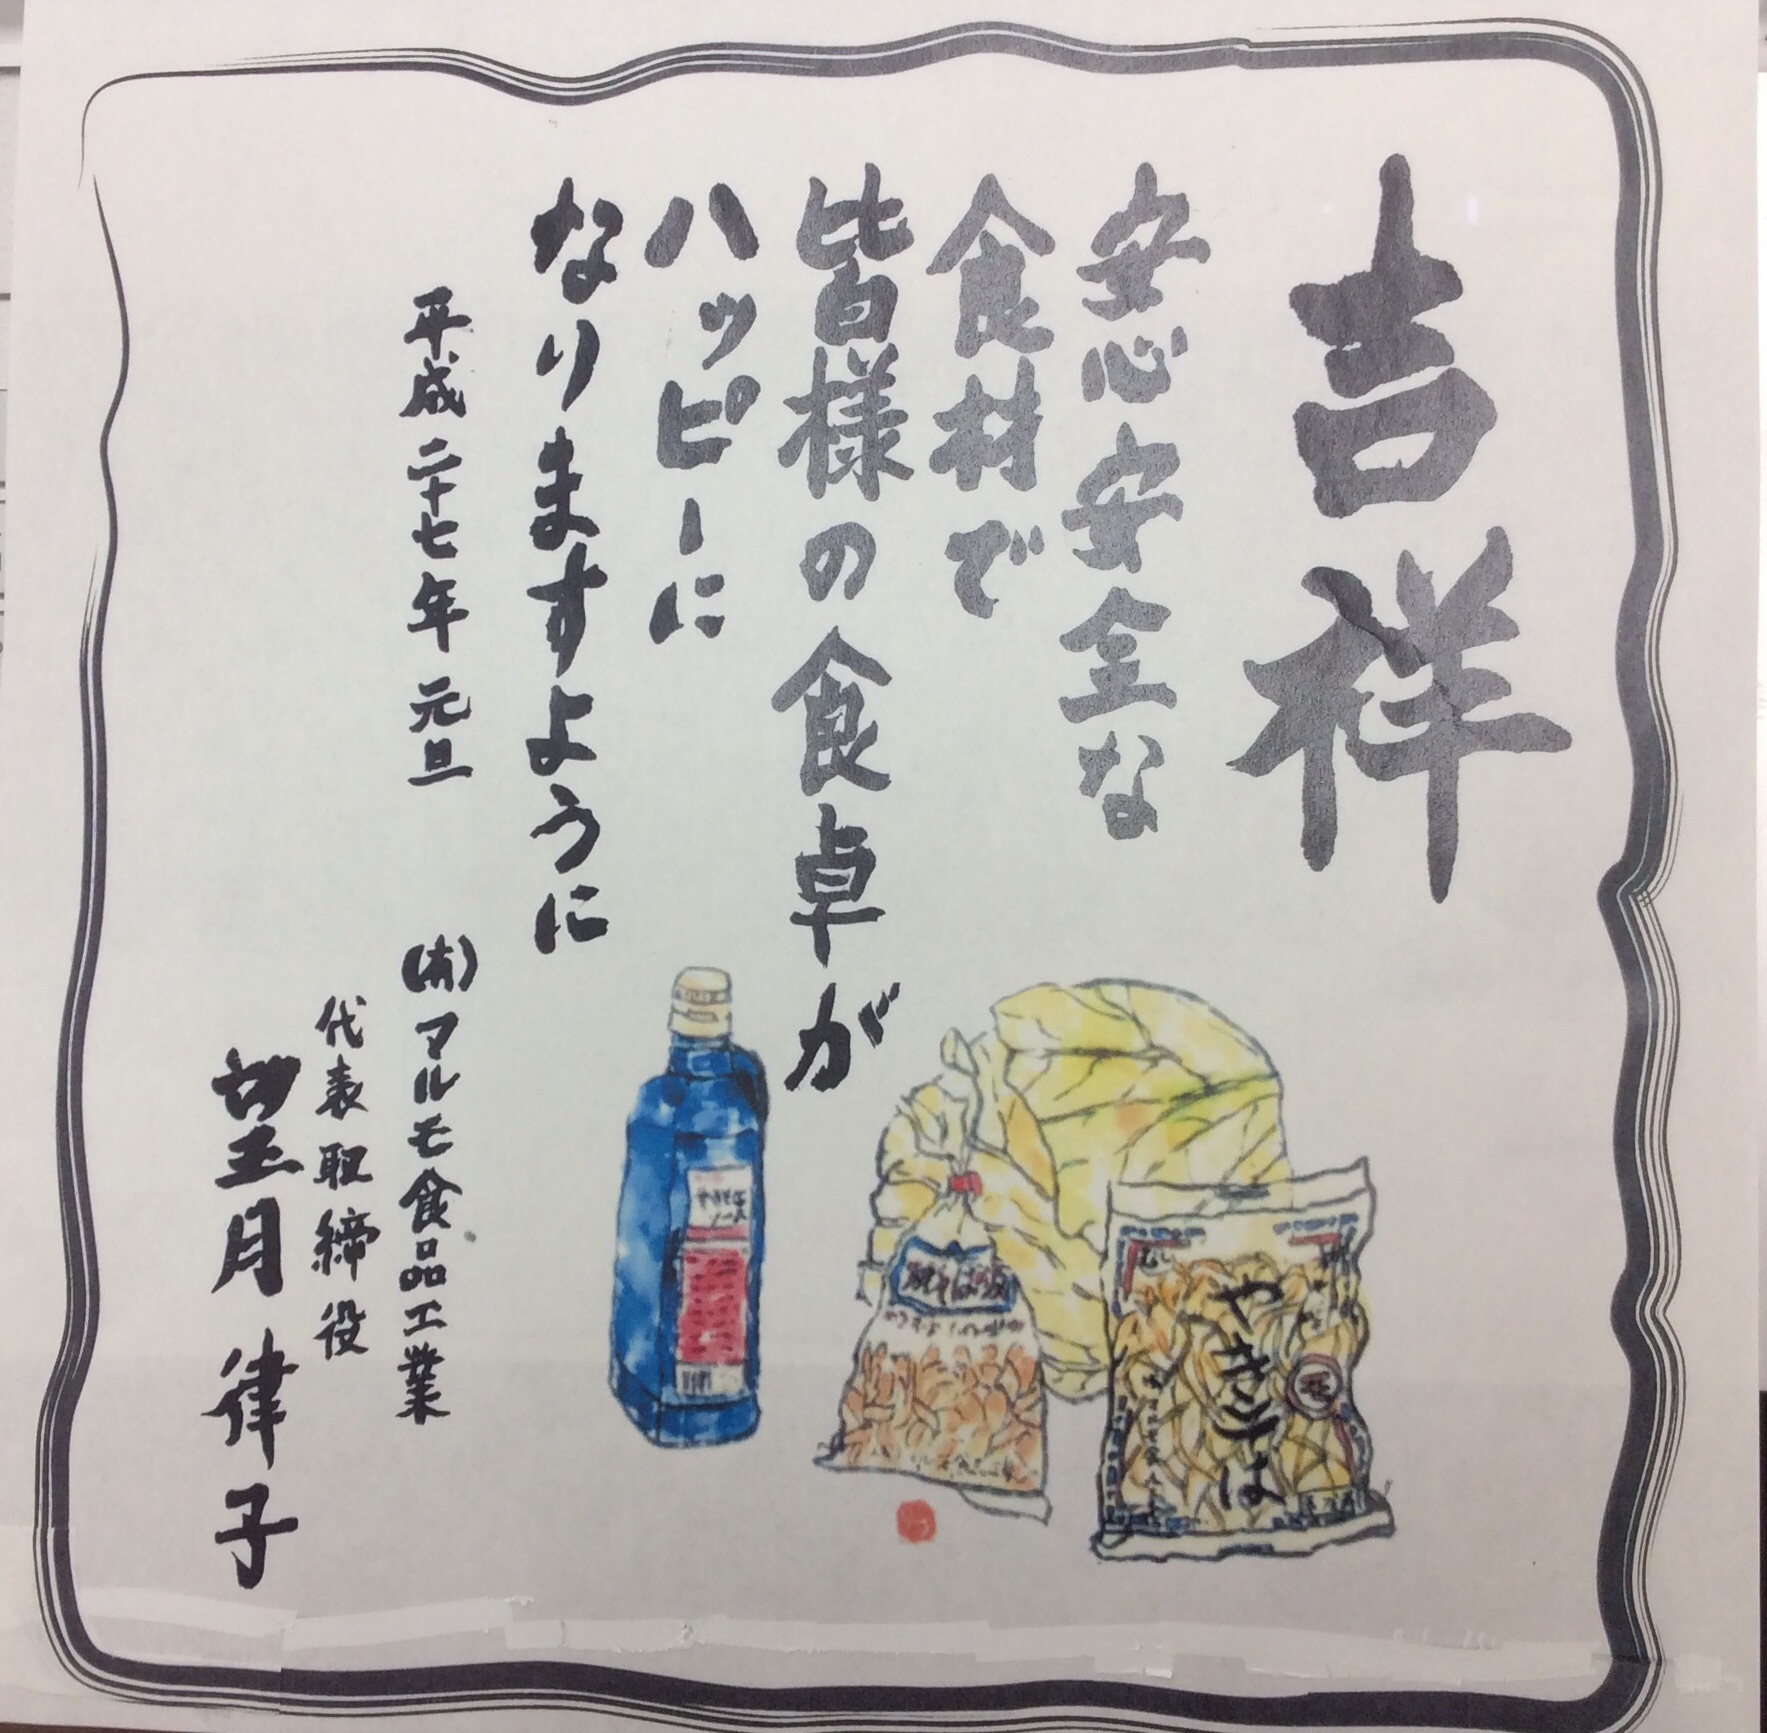 吉祥
安心安全な
食材で
皆様の食卓が
ハッピーに
なりますように
平成二十七年元旦
(有)マルモ食品工業
代表取締役
望月律子
やきそば
ソース
やきそば